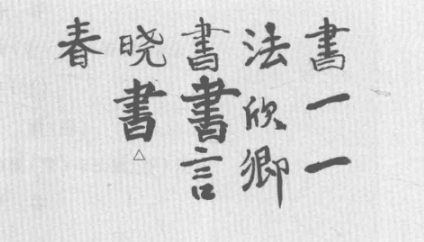 書一一
法欣卿
書書言
晓書
春